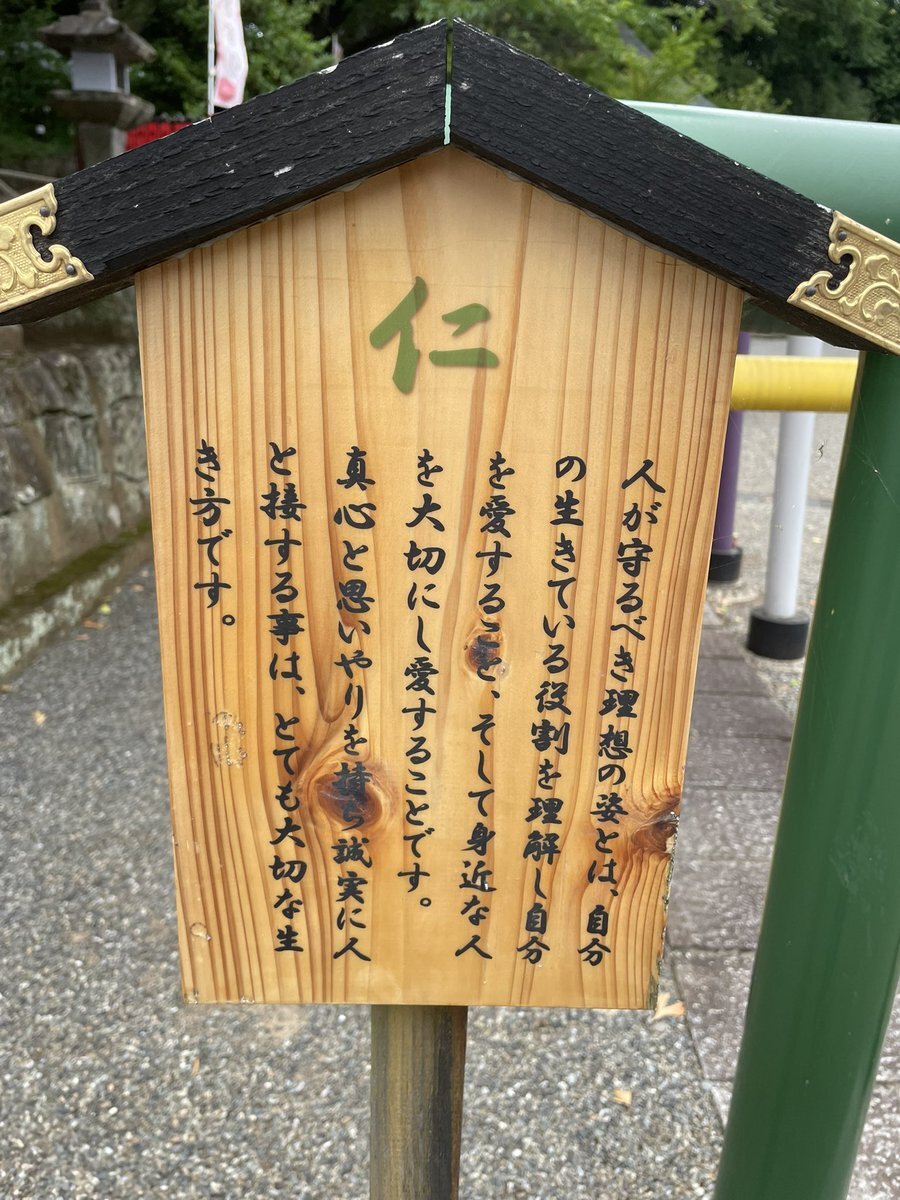 仁
人が守るべき理想の姿とは、自分
の生きている役割を理解し自分
を愛すること、そして身近な人
を大切にし愛することです。
真心と思いやりを持ち誠実に人
と接する事は、とても大切な生
き方です。